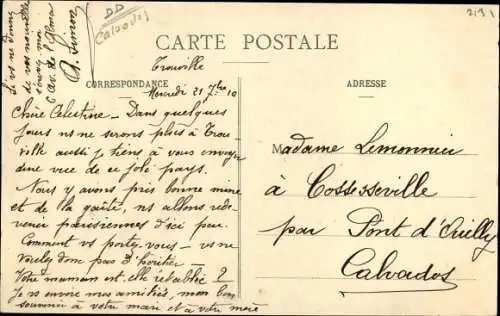 si vs ne donny
de vos nouvelle
écrivez moi
6 Av. de l'Alma
A. Simon
DD
Calvados
2191
CARTE POSTALE
Trouville
CORRESPONDANCE
ADRESSE
Mercredi 21 7bre 10
Chère Célestine - Dans quelques
jours ns ne serons plus à Trou-
ville aussi je tiens à vous envoyer
une vue de ce joli pays.
Nous y avons pris bonne mine
et de la gaîté, ns allons rede-
venir parisiennes d'ici peu.
Comment vs portez-vous - vs ne
voulez donc pas d'héritier -
Votre maman est-elle rétablie ?
Je vs envoie mes amitiés, mon bon
souvenir à votre mari et à votre mère
Madame Lemonnier
à Cossesseville
par Pont d'Ouilly
Calvados